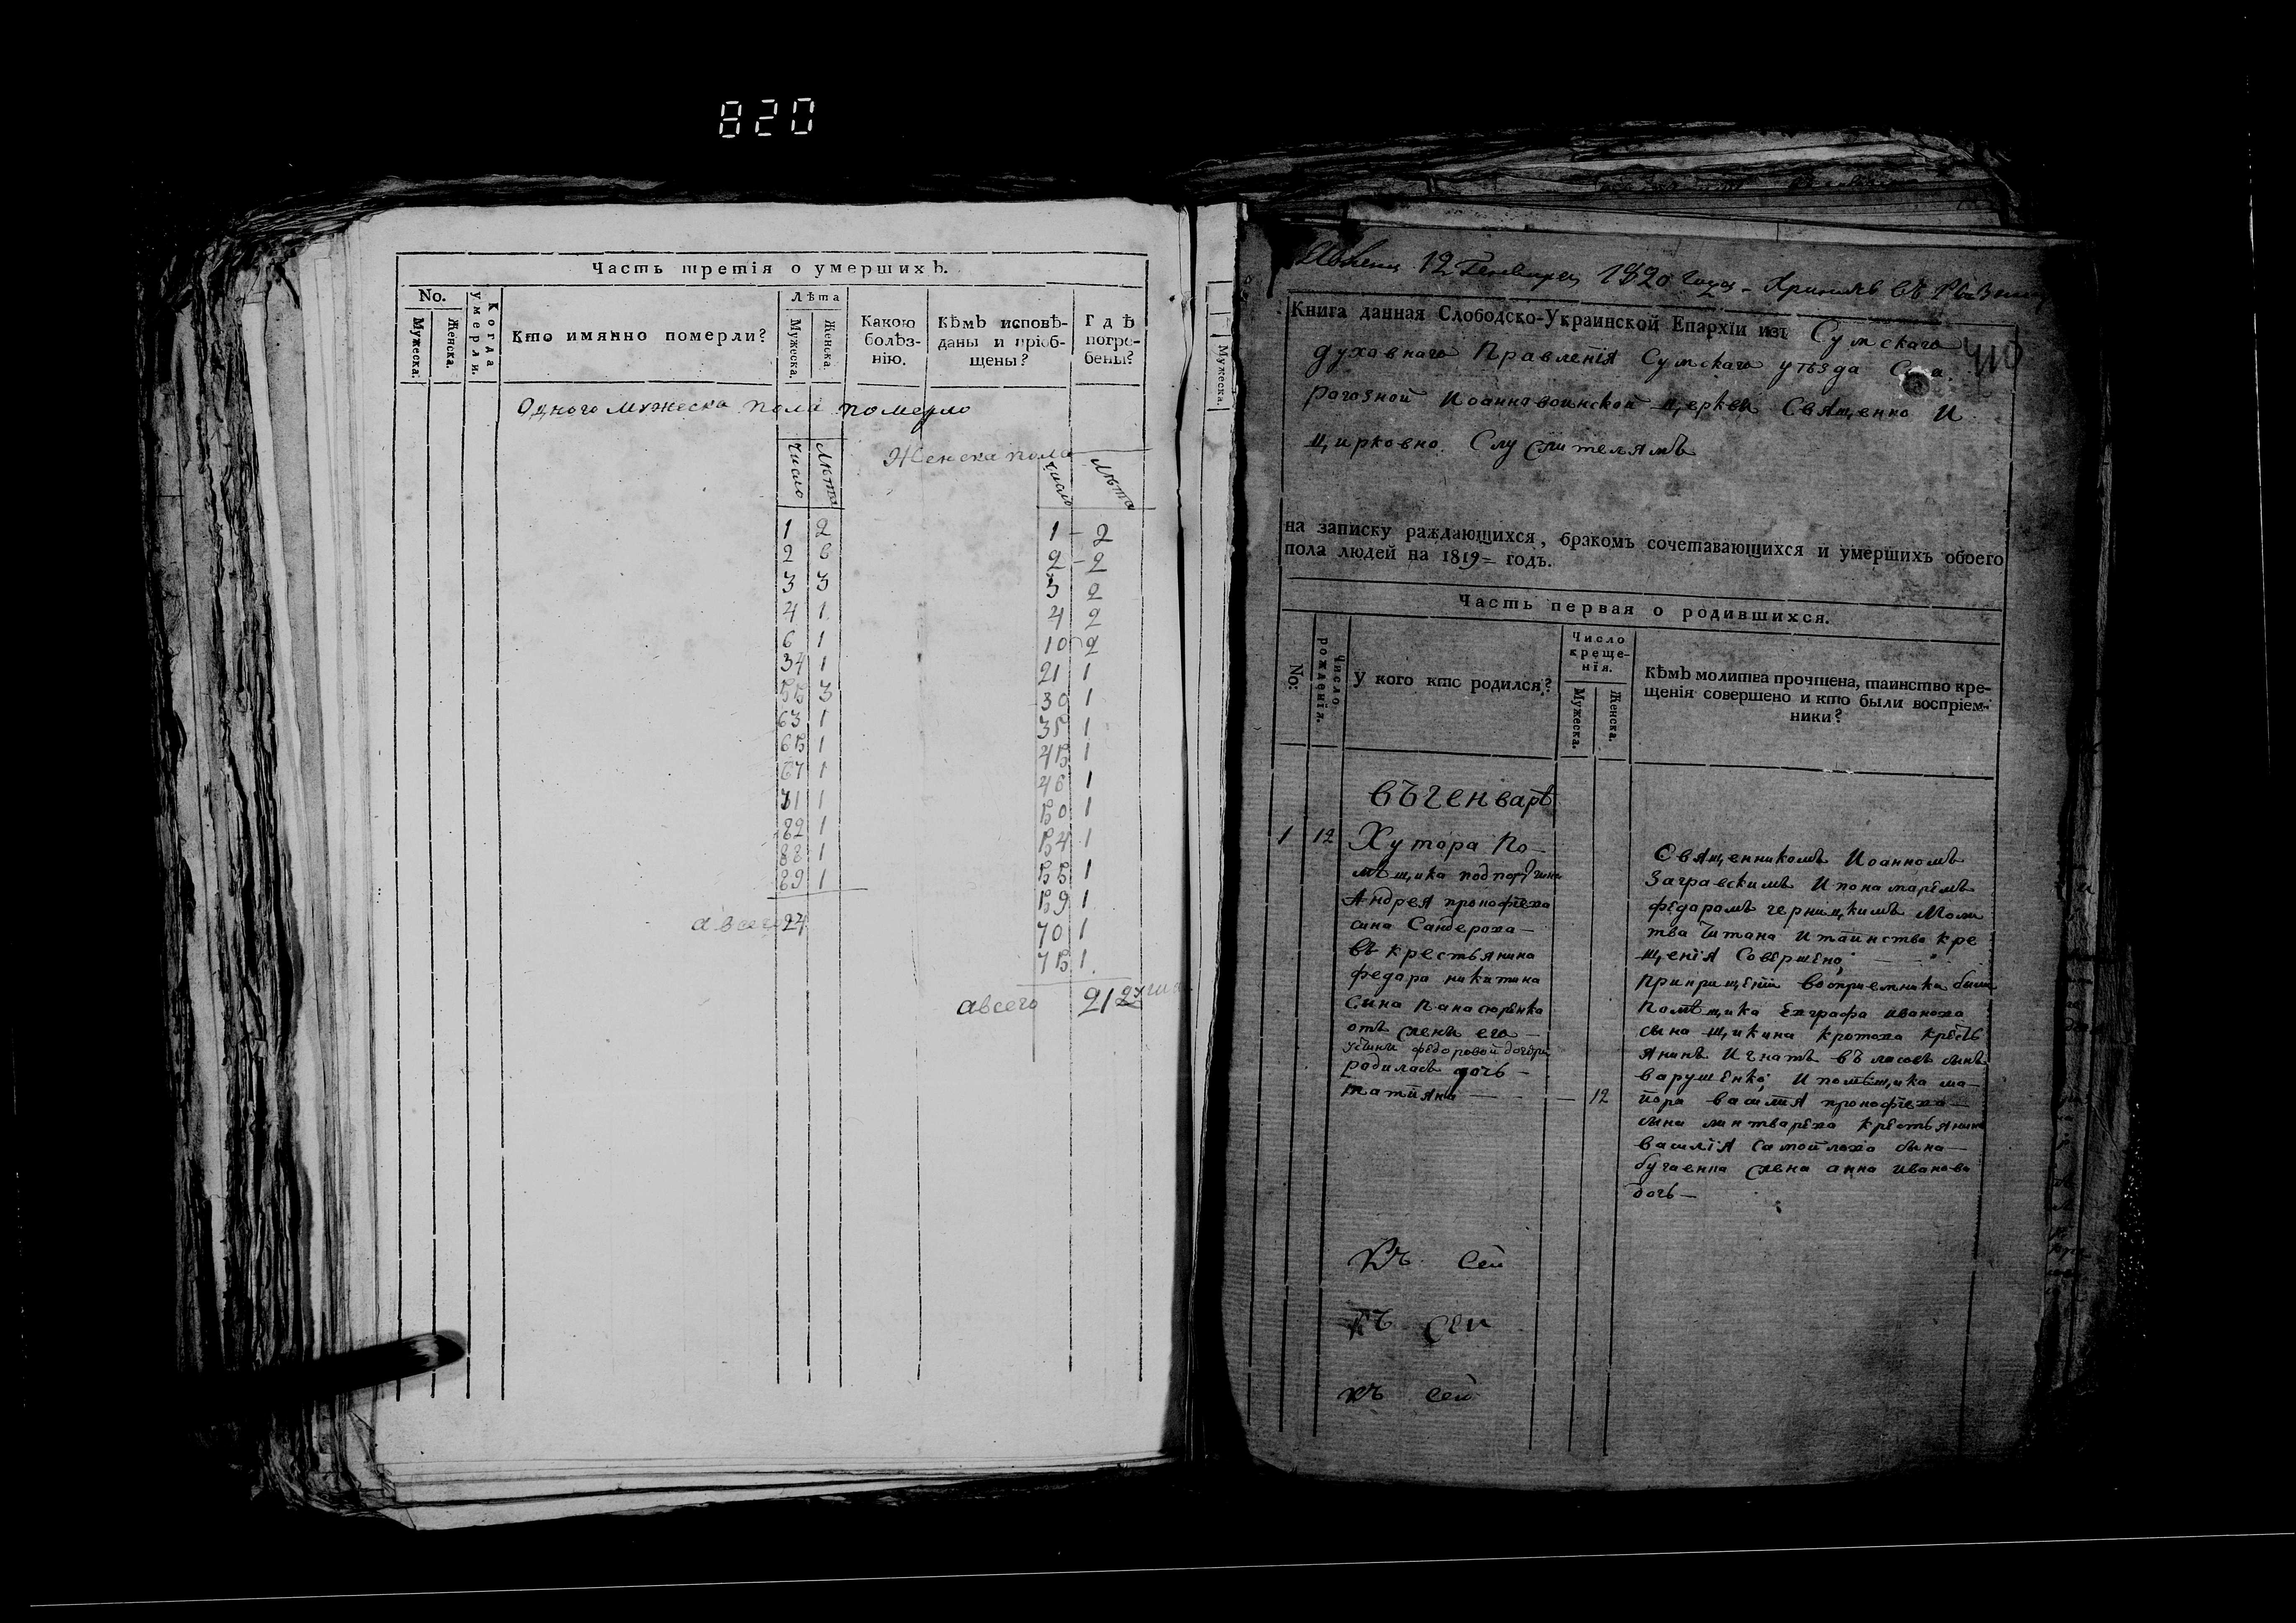 820
Часть третія о умершихъ.
No.
Мужеска.
Женска.
Когда умерли.
Кто имянно померли?
Лѣта
Мужеска.
Женска.
Какою
болѣз-
нію.
Кѣмъ исповѣ-
даны и пріоб-
щены?
Гдѣ
погре-
бены?
Одного мужеска пола померло
Число
Лѣта
1 2
2 6
3 3
4 1
6 1
34 1
55 3
63 1
65 1
67 1
71 1
82 1
88 1
89 1
а всего 24
Женска пола
число
лѣта
1 - 2
2 - 2
3 2
4 2
10 2
21 1
30 1
35 1
45 1
46 1
50 1
54 1
55 1
59 1
70 1
75 1
а всего 21
Мужеска.
12 Генваря 1820 года
Книга данная Слободско-Украинской Епархіи изъ Сумскаго
духовнаго Правленія Сумскаго уѣзда
рогозной Иоанновоинской церкви Священно И
цирковно Служителямъ
на записку раждающихся, бракомъ сочетавающихся и умершихъ обоего
пола людей на 1819 = годъ.
Часть первая о родившихся.
No:
Число рожденія.
У кого кто родился?
Число
креще-
нія.
Мужеска.
Женска.
Кѣмъ молитва прочтена, таинство кре-
щенія совершено и кто были воспріем-
ники?
въ генварѣ
1 12 Хутора По-
мѣщика
Андрея прокофіева
сина Сандерова
въ крестьянина
федора никитина
сина Панасюренка
отъ жены его
федоровой дочери
родилась дочь -
татіяна — 12
Священникомъ Иоанномъ
Загравскимъ И понамарѐмъ
федаромъ черницкимъ Моли
тва Читана И таинство кре
щенія Совершено,
прикрищеніи восприемника были
помѣщика Евграфа иванова
сына щикина кротова кресть
янинъ Игнатъ власовъ сынъ
варушенко, И помѣщика ма-
іора василія прокофіева
сына линтварева крестьянина
василія Самойлова сына
бугаенка жена анна иванова
дочь -
Къ сей
Къ сей
къ сей